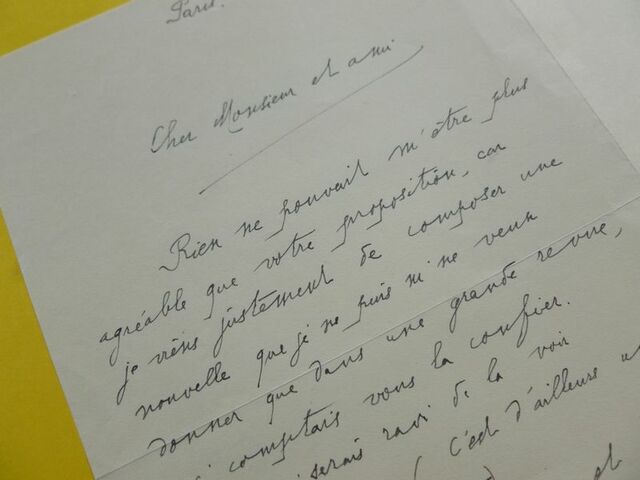 Paris.
Cher Monsieur et ami
Rien ne pouvait m'être plus
agréable que votre proposition, car
je viens justement de composer une
nouvelle que je ne puis ni ne veux
donner que dans une grande revue,
comptais vous la confier.
serais ravi de la voir
( C'est d'ailleurs
et